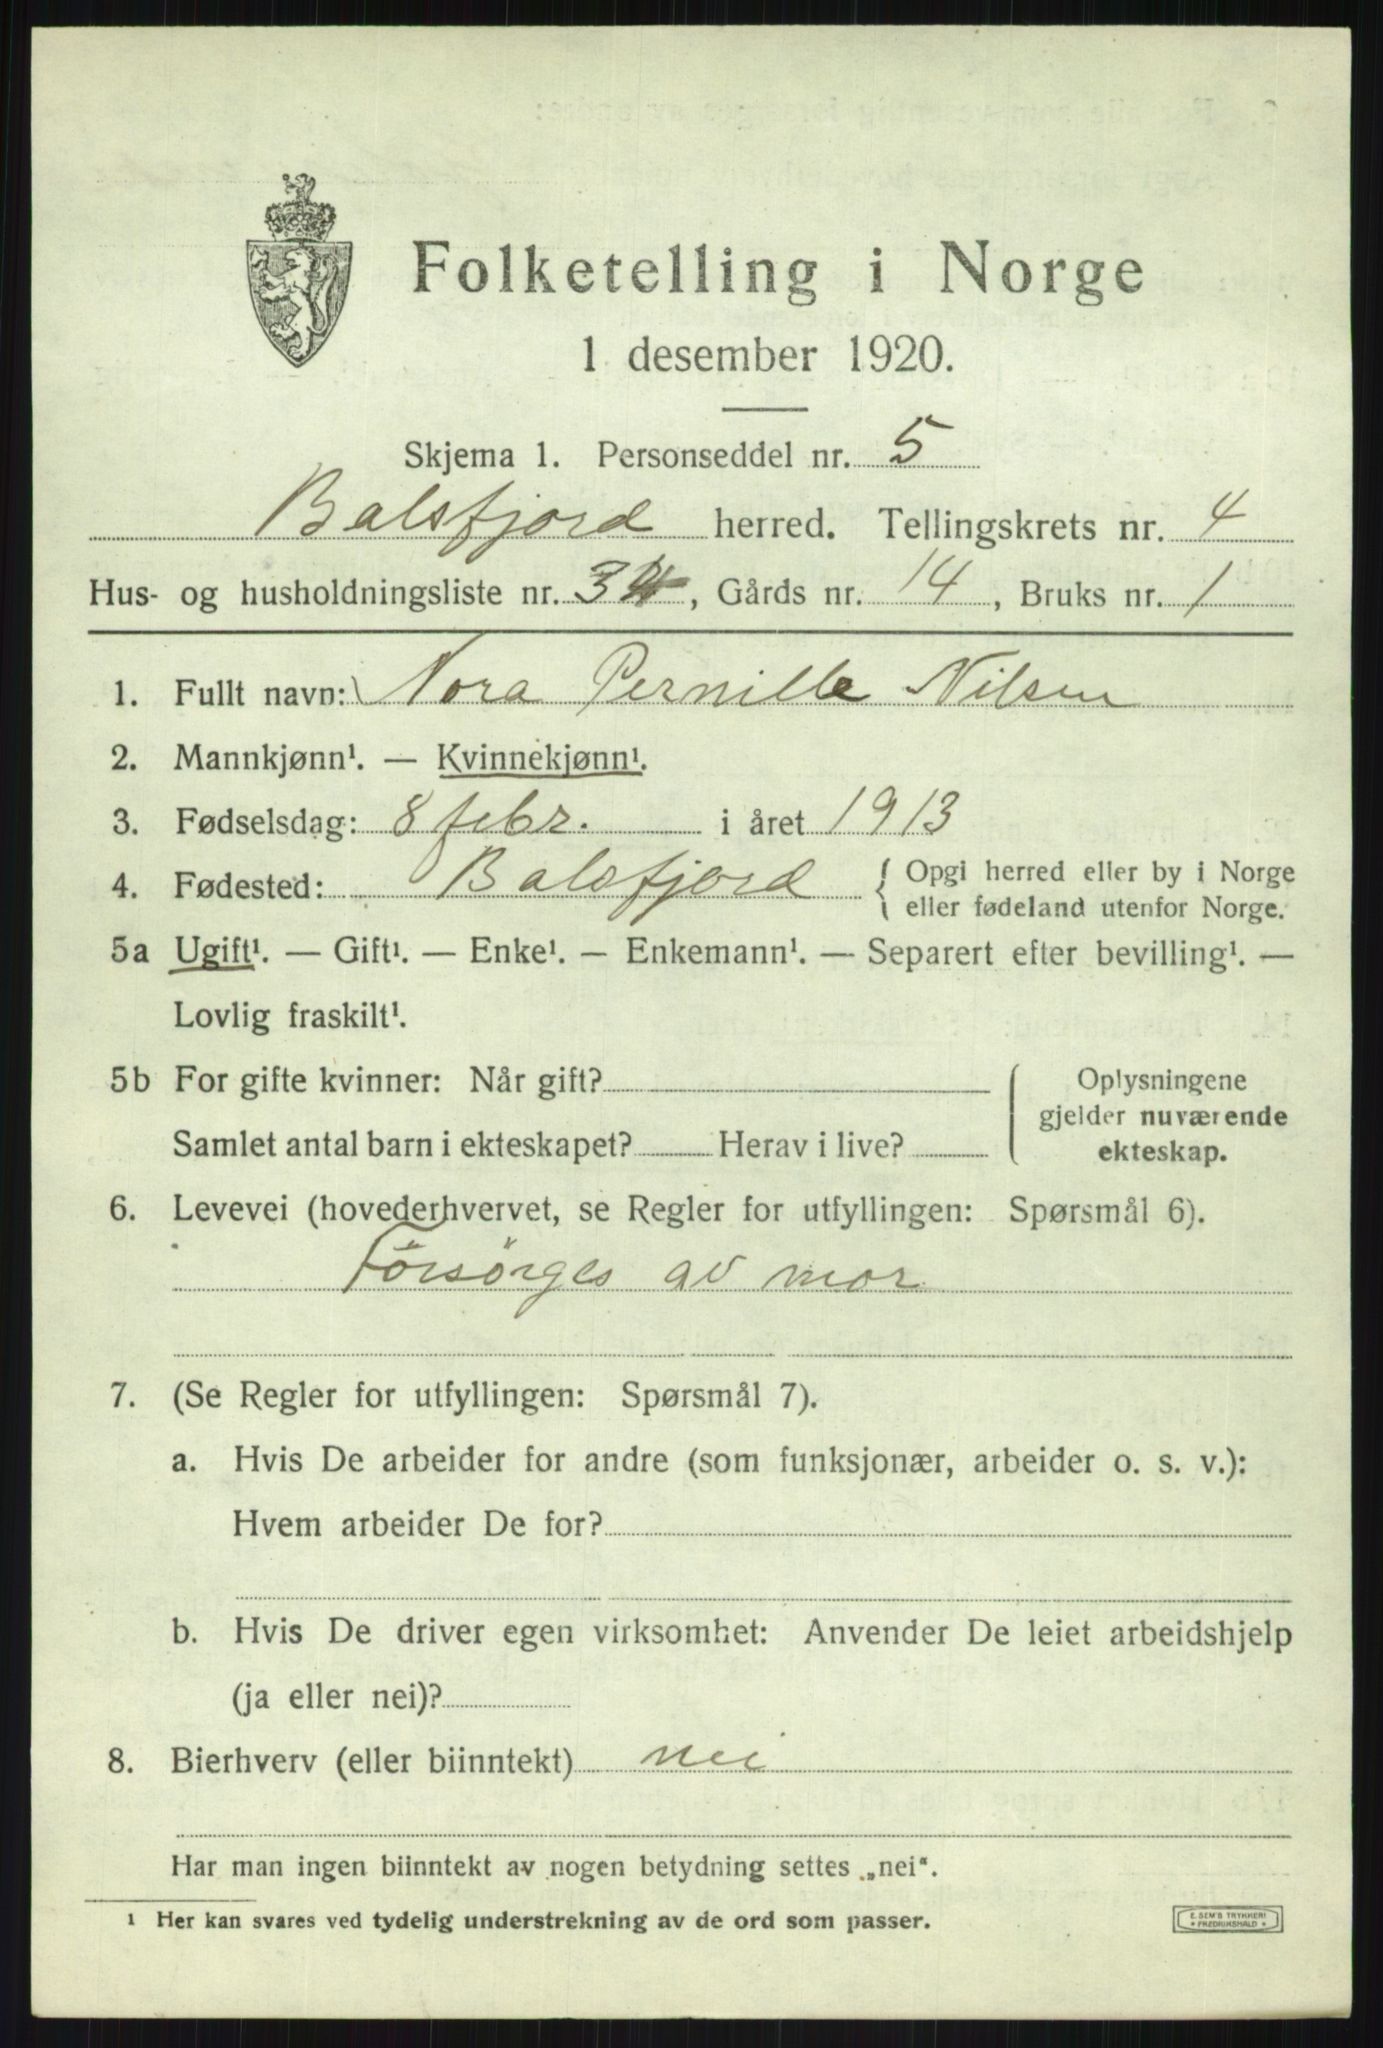 Folketelling i Norge
1 desember 1920.
Skjema 1. Personseddel nr. 5
Balsfjord herred. Tellingskrets nr. 4
Hus- og husholdningsliste nr. 34, Gårds nr. 14, Bruks nr. 1
1. Fullt navn: Nora Pernille Nilsen
2. Mannkjønn¹. — Kvinnekjønn¹.
3. Fødselsdag: 8 febr. i året 1913
4. Fødested: Balsfjord { Opgi herred eller by i Norge
eller fødeland utenfor Norge.
5a Ugift¹. — Gift¹. — Enke¹. — Enkemann¹. — Separert efter bevilling¹. —
Lovlig fraskilt¹.
5b For gifte kvinner: Når gift?
Samlet antal barn i ekteskapet? Herav i live?
Oplysningene
gjelder nuværende
ekteskap.
6. Levevei (hovederhvervet, se Regler for utfyllingen: Spørsmål 6).
Försörges av mor
7. (Se Regler for utfyllingen: Spørsmål 7).
a. Hvis De arbeider for andre (som funksjonær, arbeider o. s. v.):
Hvem arbeider De for?
b. Hvis De driver egen virksomhet: Anvender De leiet arbeidshjelp
(ja eller nei)?
8. Bierhverv (eller biinntekt) nei
Har man ingen biinntekt av nogen betydning settes „nei“.
¹ Her kan svares ved tydelig understrekning av de ord som passer.
E. SEM'S TRYKKERI
• FREDRIKSHALD •